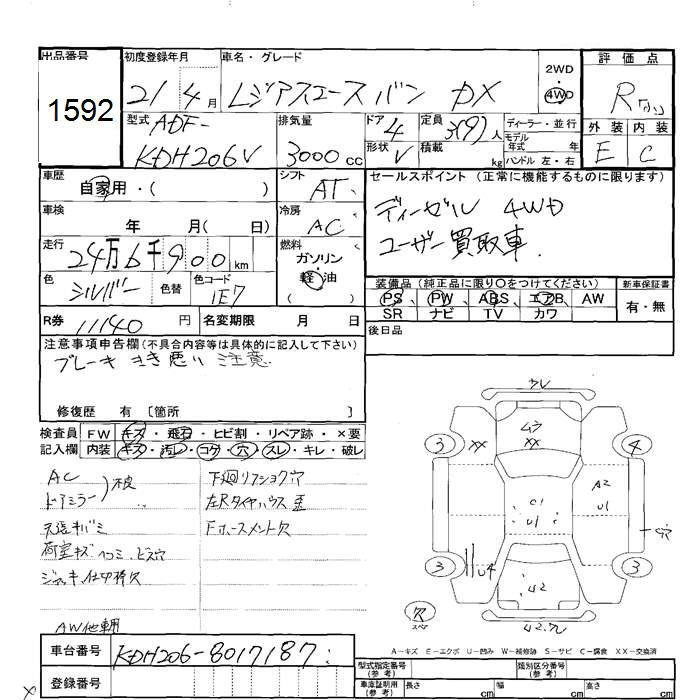 出品番号 初度登録年月 車名・グレード 2WD 評価点
1592 21 4月 レジアスエース バン DX 4WD R
型式 ADF-KDH206V 排気量 3000cc ドア 4 定員 3(9)人 ディーラー・並行 外装 内装
形状 V 積載 kg モデル年式 年 ハンドル 左・右 E C
車歴 自家用・( ) シフト AT セールスポイント(正常に機能するものに限ります)
車検 年 月( 日) 冷房 AC ディーゼル 4WD
走行 24万6千900km 燃料 ガソリン 軽・油 ( ) ユーザー買取車
色 シルバー 色替 色コード 1E7 装備品(純正品に限り○をつけてください) 新車保証書
PS PW ABS エアB AW 有・無
R券 11140円 名変期限 月 日 SR ナビ TV カワ
注意事項申告欄(不具合内容等は具体的に記入して下さい) 後日品
ブレーキ きき悪い 注意
修復歴 有 [箇所 ]
検査員 FW キズ・飛石・ヒビ割・リペア跡・×要
記入欄 内装 キズ・汚レ・コゲ・穴・スレ・キレ・破レ
AC 下廻リフショク穴
ドアミラー 不良 左Rタイヤハウス
天張キバミ Fホースメント欠
荷室キズ ヘコミ・ビス穴
ジャッキ
AW他車用
ワレ
ワ XX
3 XX 4
A2 U1
C1 U1
穴
3 U4 3
42
欠 スペア
A-キズ E-エクボ U-凹み W-補修跡 S-サビ C-腐食 XX-交換済
車台番号 KDH206-8017187 型式指定番号(参考) 類別区分番号(参考)
登録番号 車庫証明用(参考) 長さ cm 幅 cm 高さ cm